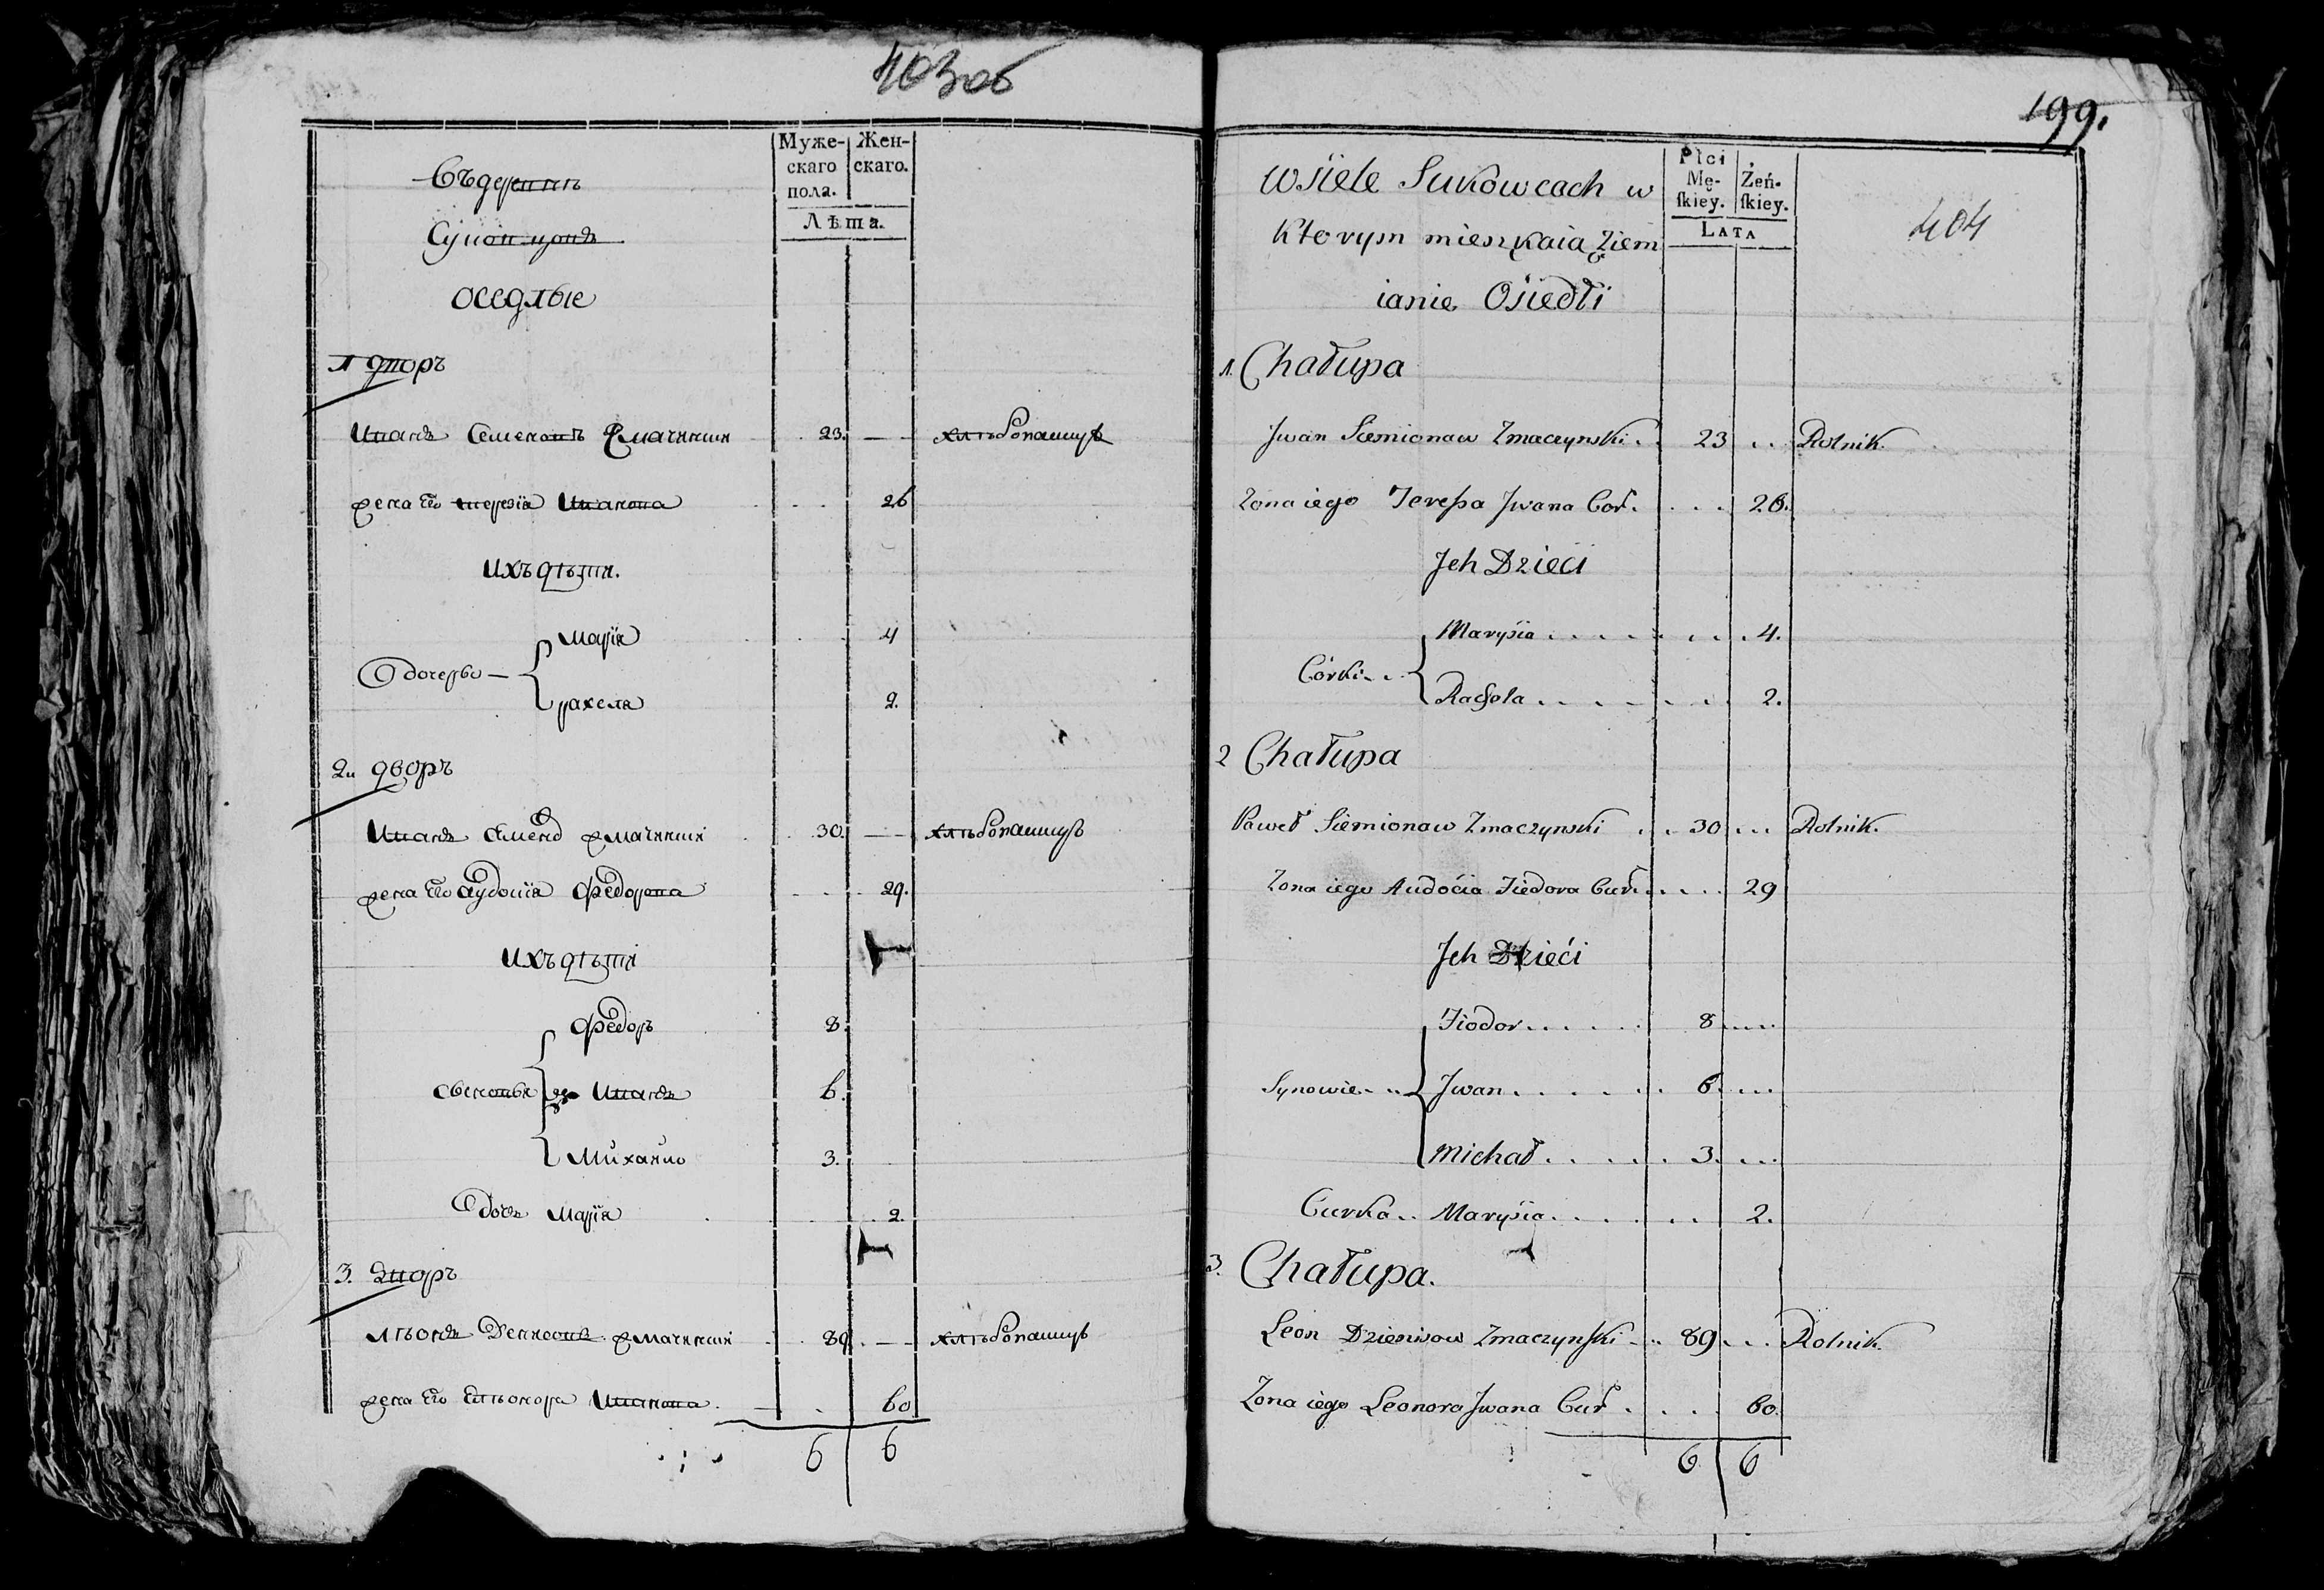 403об
Муже-
скаго
пола.
Жен-
скаго.
Лѣта.
Въдеревнѣ
оседлые
1 дворъ
Иванъ Семеновъ Жмачинши 23. — хлѣбопашцъ
жена Его терезiа Иванова 26
ихъ дѣти.
дочерьи — марiа 4
рахела 2.
2й дворъ
Иванъ Семенов жмачинши 30. — хлѣбопашцъ
жена Его аудоцiа федорова 29.
ихъ дѣти
федоръ 8.
сыновьи Иванъ 6.
Михаило 3.
дочь марiа 2.
3. дворъ
Лѣонъ Денисовъ жмачинши 89. — хлѣбопашцъ
жена Его Елѣонора Иванова 60
6 6
199.
404
Płci
Mę-
ſkiey.
Żeń-
ſkiey.
LATA
Wsiele Sukowcach w
Ktorym mieszkaią Ziem
ianie Osiedli
1. Chałupa
Jwan Siemionaw Zmaczynski 23 Rolnik.
Zona iego Teressa Jwana Cór. 26.
Jch Dzieci
Córki Marysia 4.
Rachela 2.
2 Chałupa
Paweł Siemionaw Zmaczynski 30 Rolnik.
Zona iego Audocia Fiedora Cur. 29
Jch Dzieći
Fiodor 8
Synowie Jwan 6.
Michał 3.
Curka Marysia 2.
3. Chałupa.
Leon Dzienisow Zmaczynſki 89 Rolnik.
Zona iego Leonora Jwana Cur 60.
6 6